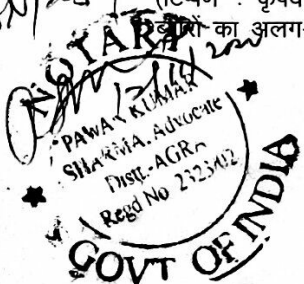 (टिप्पण : कृपया
का अलग-
NOTARY
PAWAN KUMAR
SHARMA, Advocate
Distt.-AGRA
Regd No 2323/02
GOVT OF INDIA